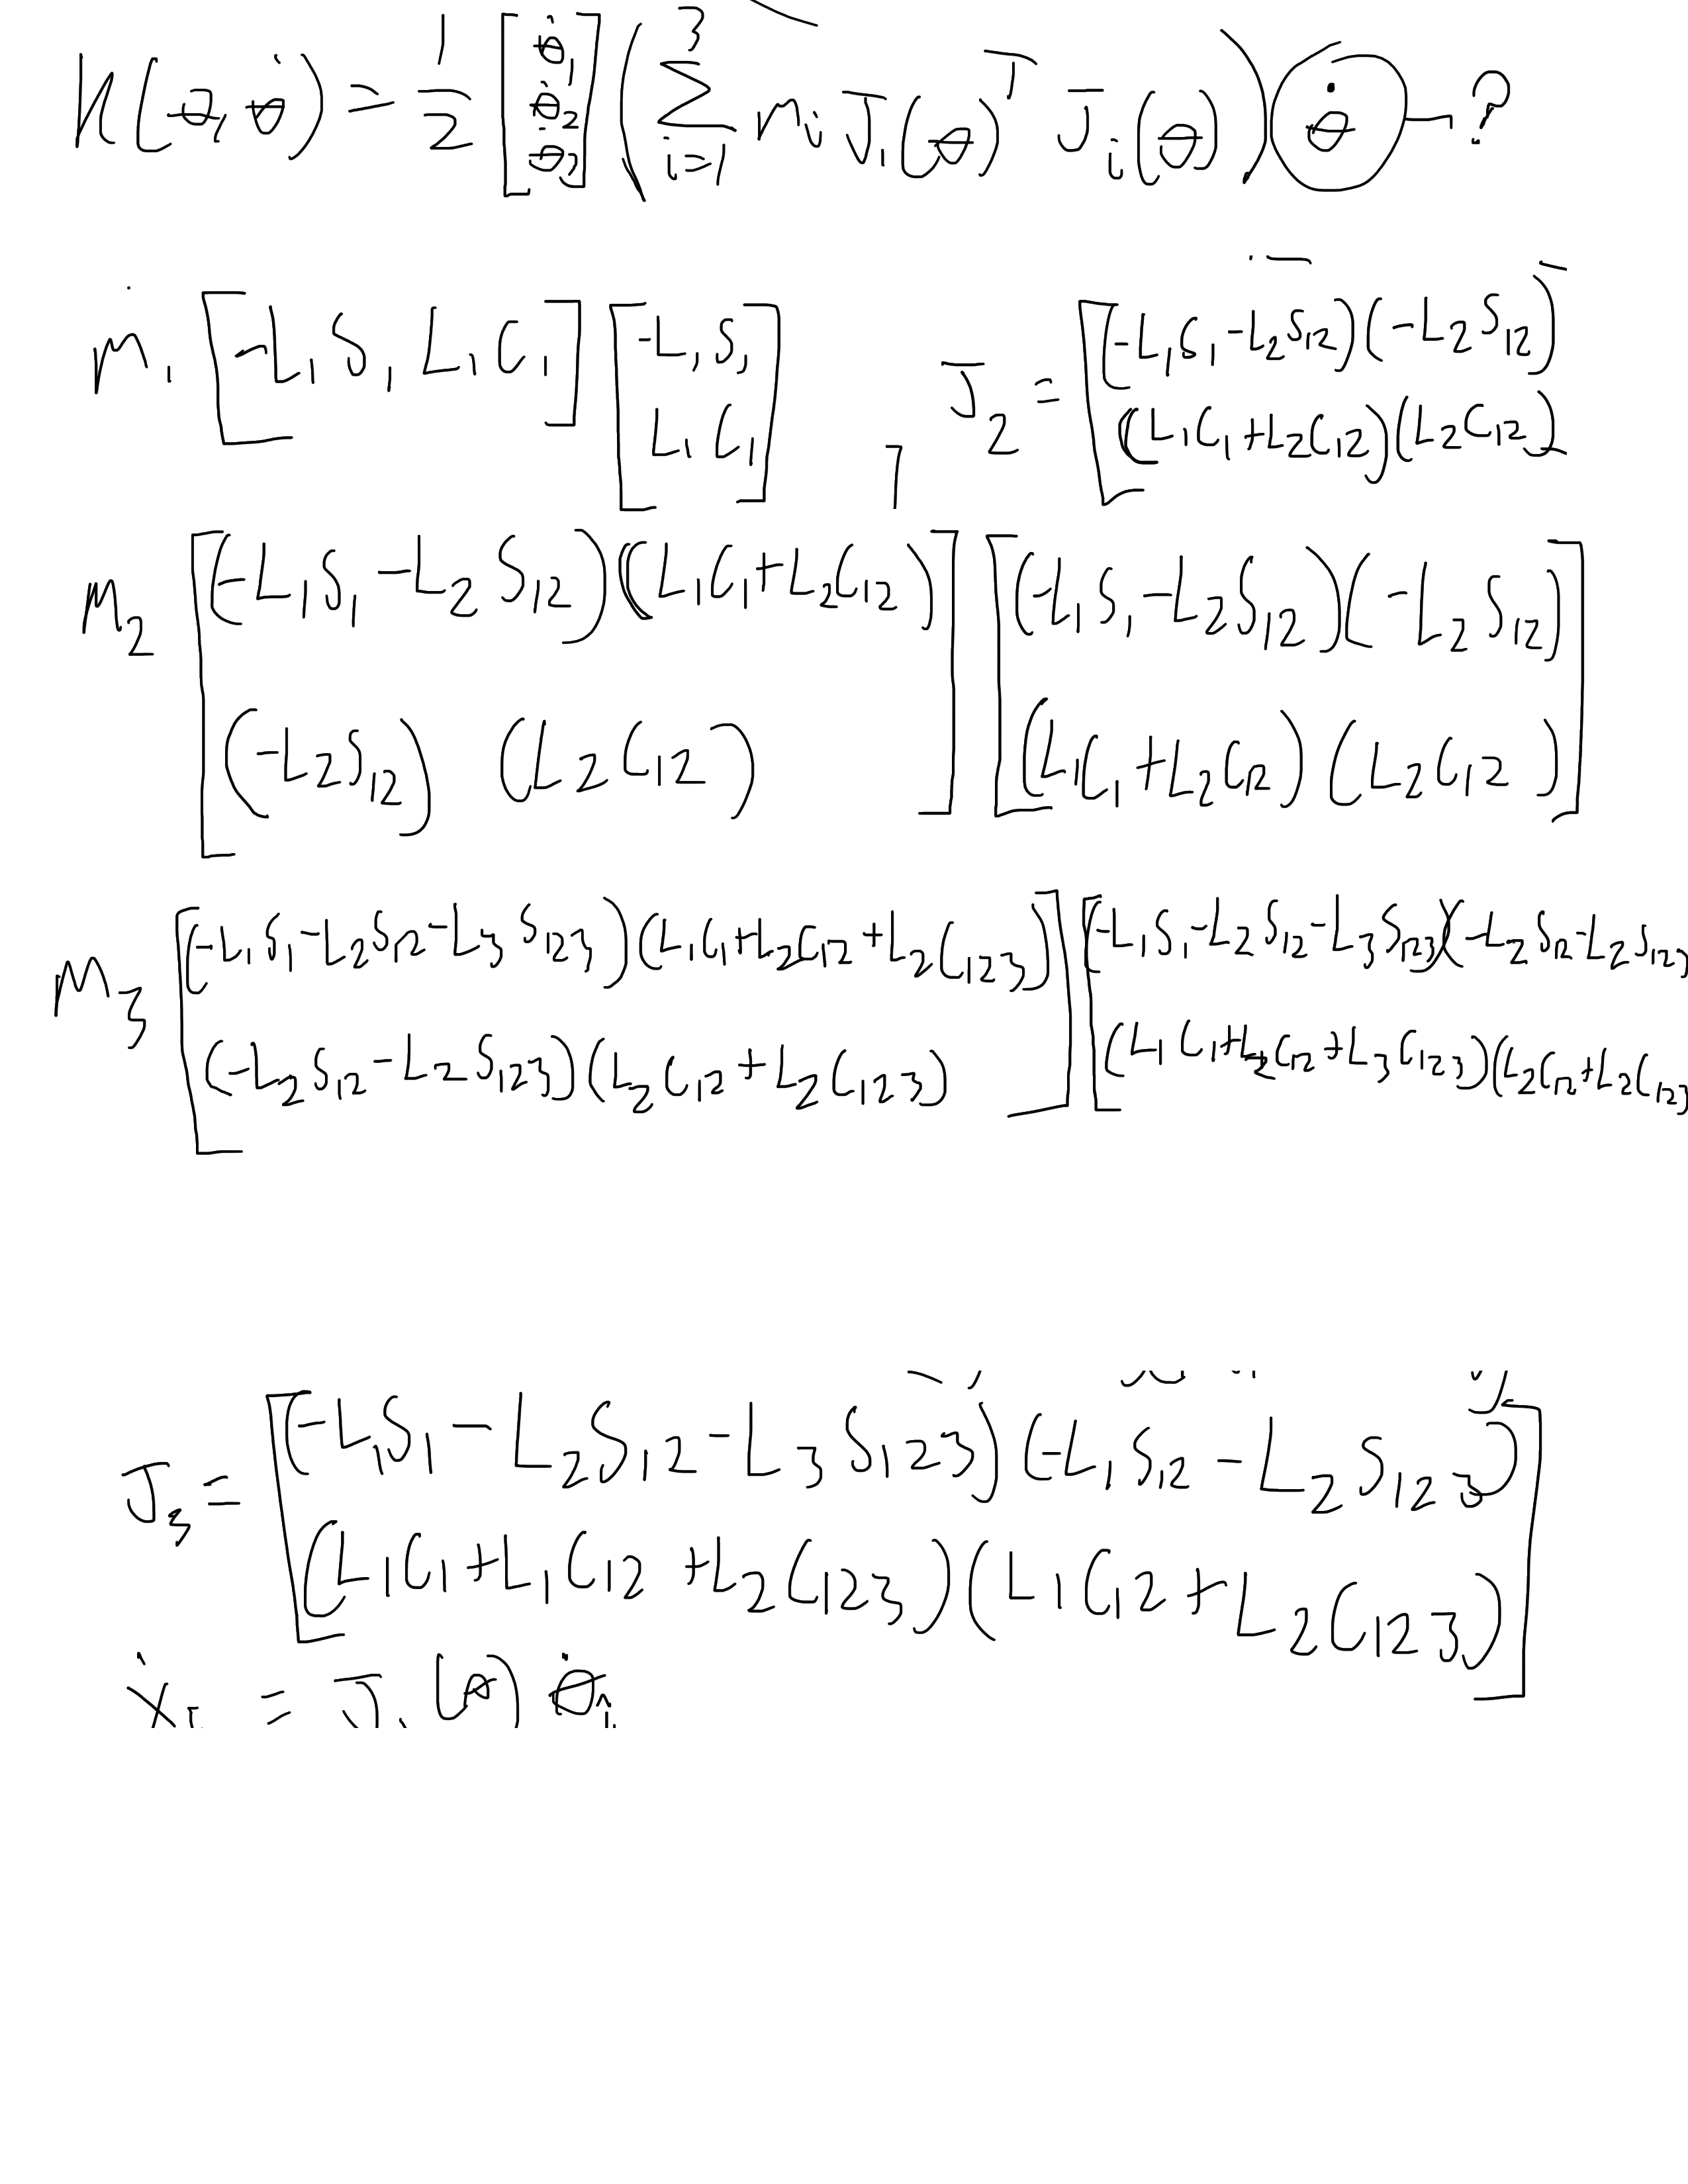 K(θ, θ̇) = 1/2 [θ̇1 θ̇2 θ̇3] (∑ i=1 3 mi Ji(θ)^T Ji(θ)) θ̇ ?
m1 [-L1S1 L1C1] [-L1S1 L1C1] , J2 = [(-L1S1-L2S12)(-L2S12)
((L1C1+L2C12)(L2C12)
m2 [(-L1S1-L2S12)((L1C1+L2C12)] [(-L1S1-L2S12)(-L2S12)]
(-L2S12) (L2C12) (L1C1+L2C12)(L2C12)
m3 [(-L1S1-L2S12-L3S123)(L1C1+L2C12+L2C123)] [(-L1S1-L2S12-L3S123)(-L2S12-L2S123
(-L2S12-L2S123)(L2C12+L2C123) (L1C1+L2C12+L3C123)(L2C12+L2C123
J3 = [(-L1S1-L2S12-L3S123)(-L1S12-L2S123)]
(L1C1+L1C12+L2C123)(L1C12+L2C123)
= J (θ) θ̇